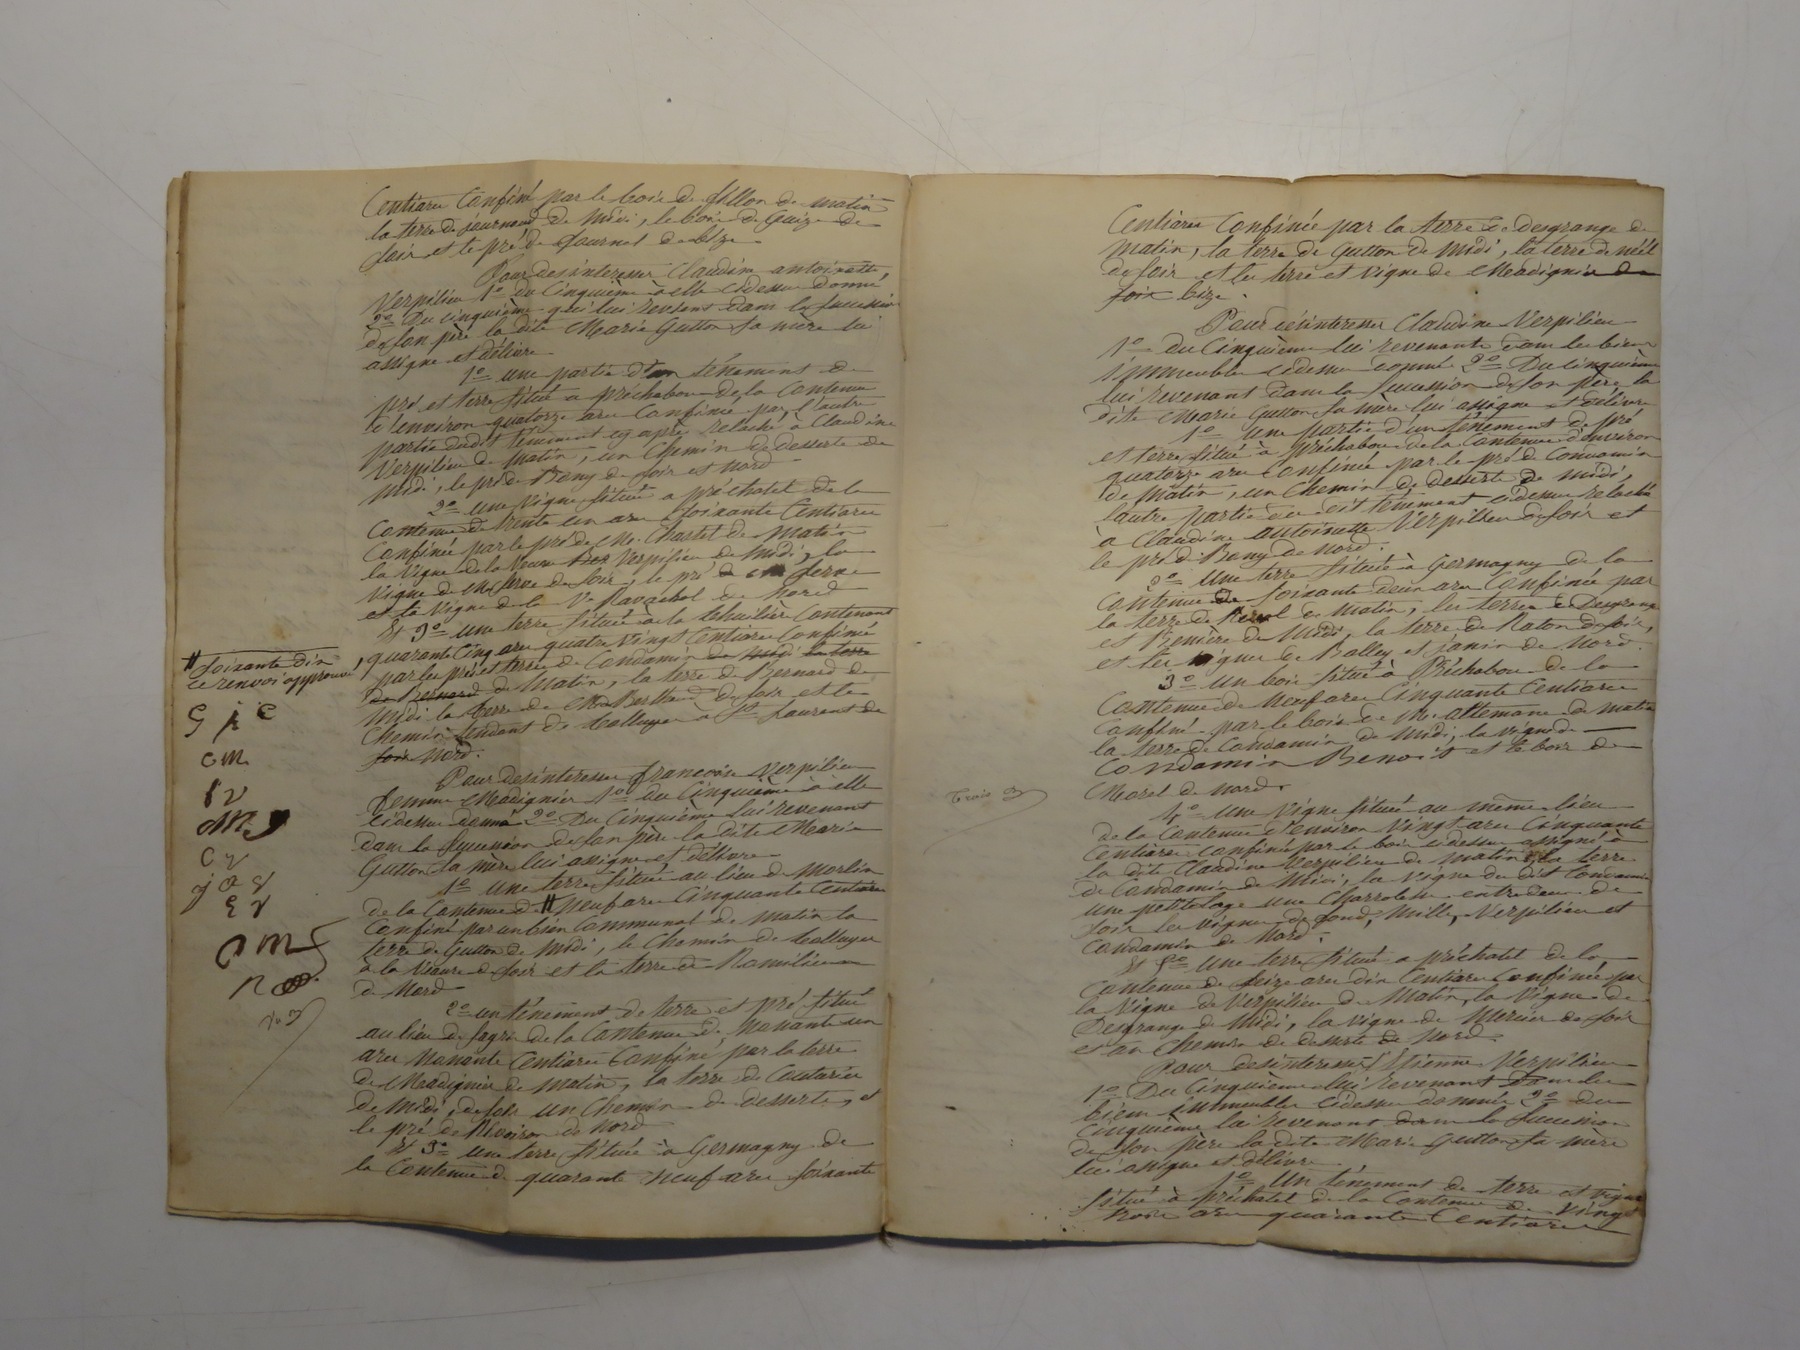 Centiares Confiné par le bois de fillon de matin
la terre de journoud de midi, le bois de Guize de
soir et le pré de Journet de bize
Pour desinteresser Claudine antoinette
Verpilieu 1º du Cinquième à elle cidessus donné
2º Du cinquième qui lui revient dans la succession
de son père la dite Marie Gutton sa mère lui
assigne et délivre
1º une partie d'un ténement de
pré et terre situé a préchabou de la Contenue
d'environ quatorze ares Confinée par l'autre
partie dudit ténement cy après relaché à Claudine
Verpilieu de matin, un Chemin de desserte de
midi, le pré de Bany de soir et nord
2º une Vigne située a préchatel de la
Contenue de trente un ares soixante Centiares
Confinée par le pré de Mr. Chastel de Matin
la Vigne de la Veuve Verpilieu de midi, la
Vigne de de soir, le pré ferne
et la Vigne de la Ve Ravachol de Nord
Et 3º une terre située à la thuilière Contenant
quarante Cinq ares quatre Vingt Centiares Confinée
par les prés et terre de Condamin de midi la terre
de Bernard de Matin, la terre de Bernard de
Midi la terre de Berthaud de soir et le
Chemin tendant de Valluger à St Laurent de
soir Nord.
Pour desinteresser françoise Verpilieu
femme Meadignier 1º du Cinquième à elle
Cidessus donné 2º Du Cinquième lui revenant
dans la succession de son père la dite Marie
Gutton sa mère lui assigne et délivre
1º une terre située au lieu de Morlin
de la Contenue de # Neuf ares Cinquante Centiares
Confiné par un bien Communal de matin la
terre de Gutton de Midi, le Chemin de Valluger
à la de soir et la terre de Ramilieu
de Nord
2º un ténement de terre et pré situé
au lieu de de la Contenue de Nonante un
ares Nonante Centiares Confiné par la terre
de Meadignier de matin, la terre de Couturier
de Midi, de soir un Chemin de desserte, et
le pré de Revoiron de Nord
Et 3º une terre située à Germagny de
la Contenue de quarante Neuf ares soixante
# soixante dix
ce renvoi approuvé
G p C
C M
P V
C V
J V
E V
Centiares Confinée par la terre de Desgrange de
matin, la terre de Gutton de midi, la terre de néel
de soir et les terre et Vigne de Meadignier de
soir bize.
Pour désinteresser Claudine Verpilieu
1º du Cinquième lui revenante dans les biens
immeubles cidessus donné 2º Du Cinquième
lui revenant dans la succession de son père la
dite Marie Gutton sa mère lui assigne et délivre
1º une partie d'un ténement de pré
et terre située à Préchabou de la Contenue d'environ
quatorze ares Confinée par le pré de Condamin
de matin, un Chemin de desserte de midi,
l'autre partie du dit ténement cidessus relaché
à Claudine antoinette Verpilieu de soir et
le pré de Bany de nord.
2º Une terre située à Germagny de la
Contenue de soixante deux ares Confinée par
la terre de de matin, les terres de Desgrange
et de Midi, la terre de Raton de soir,
et les Vignes de Balley et janin de Nord.
3º un bois situé à Préchabou de la
Contenue de Neuf ares Cinquante Centiares
Confiné par le bois de Mr. allemane de matin
la terre de Condamin de midi, la vigne de
Condamin Benoit et le bois de
Morel de nord.
4º une Vigne située au même lieu
de la Contenue d'environ Vingt ares Cinquante
Centiares confinée par le bois cidessus assigné à
la dite Claudine Verpilieu de matin, la terre
de Condamin de Midi, la Vigne du dit Condamin
une petite loge une Charrotière entre deux de
soir les vignes de fond, Mille, Verpilieu et
Condamin de Nord.
Et 5º une terre située a préchatel de la
Contenue de seize ares dix Centiares Confinée par
la Vigne de Verpilieu de Matin, la Vigne de
Desgrange de Midi, la vigne de Mercier de soir
et un Chemin de desserte de Nord.
Pour desinteresser Etienne Verpilieu
1º Du Cinquième lui revenant dans les
biens immeubles cidessus donnés 2º du
Cinquième lui revenant dans la succession
de son père la dite Marie Gutton sa mère
lui assigne et délivre
1º Un ténement de terre et vigne
situé à préchatel de la Contenue de Vingt
trois ares quarante Centiares